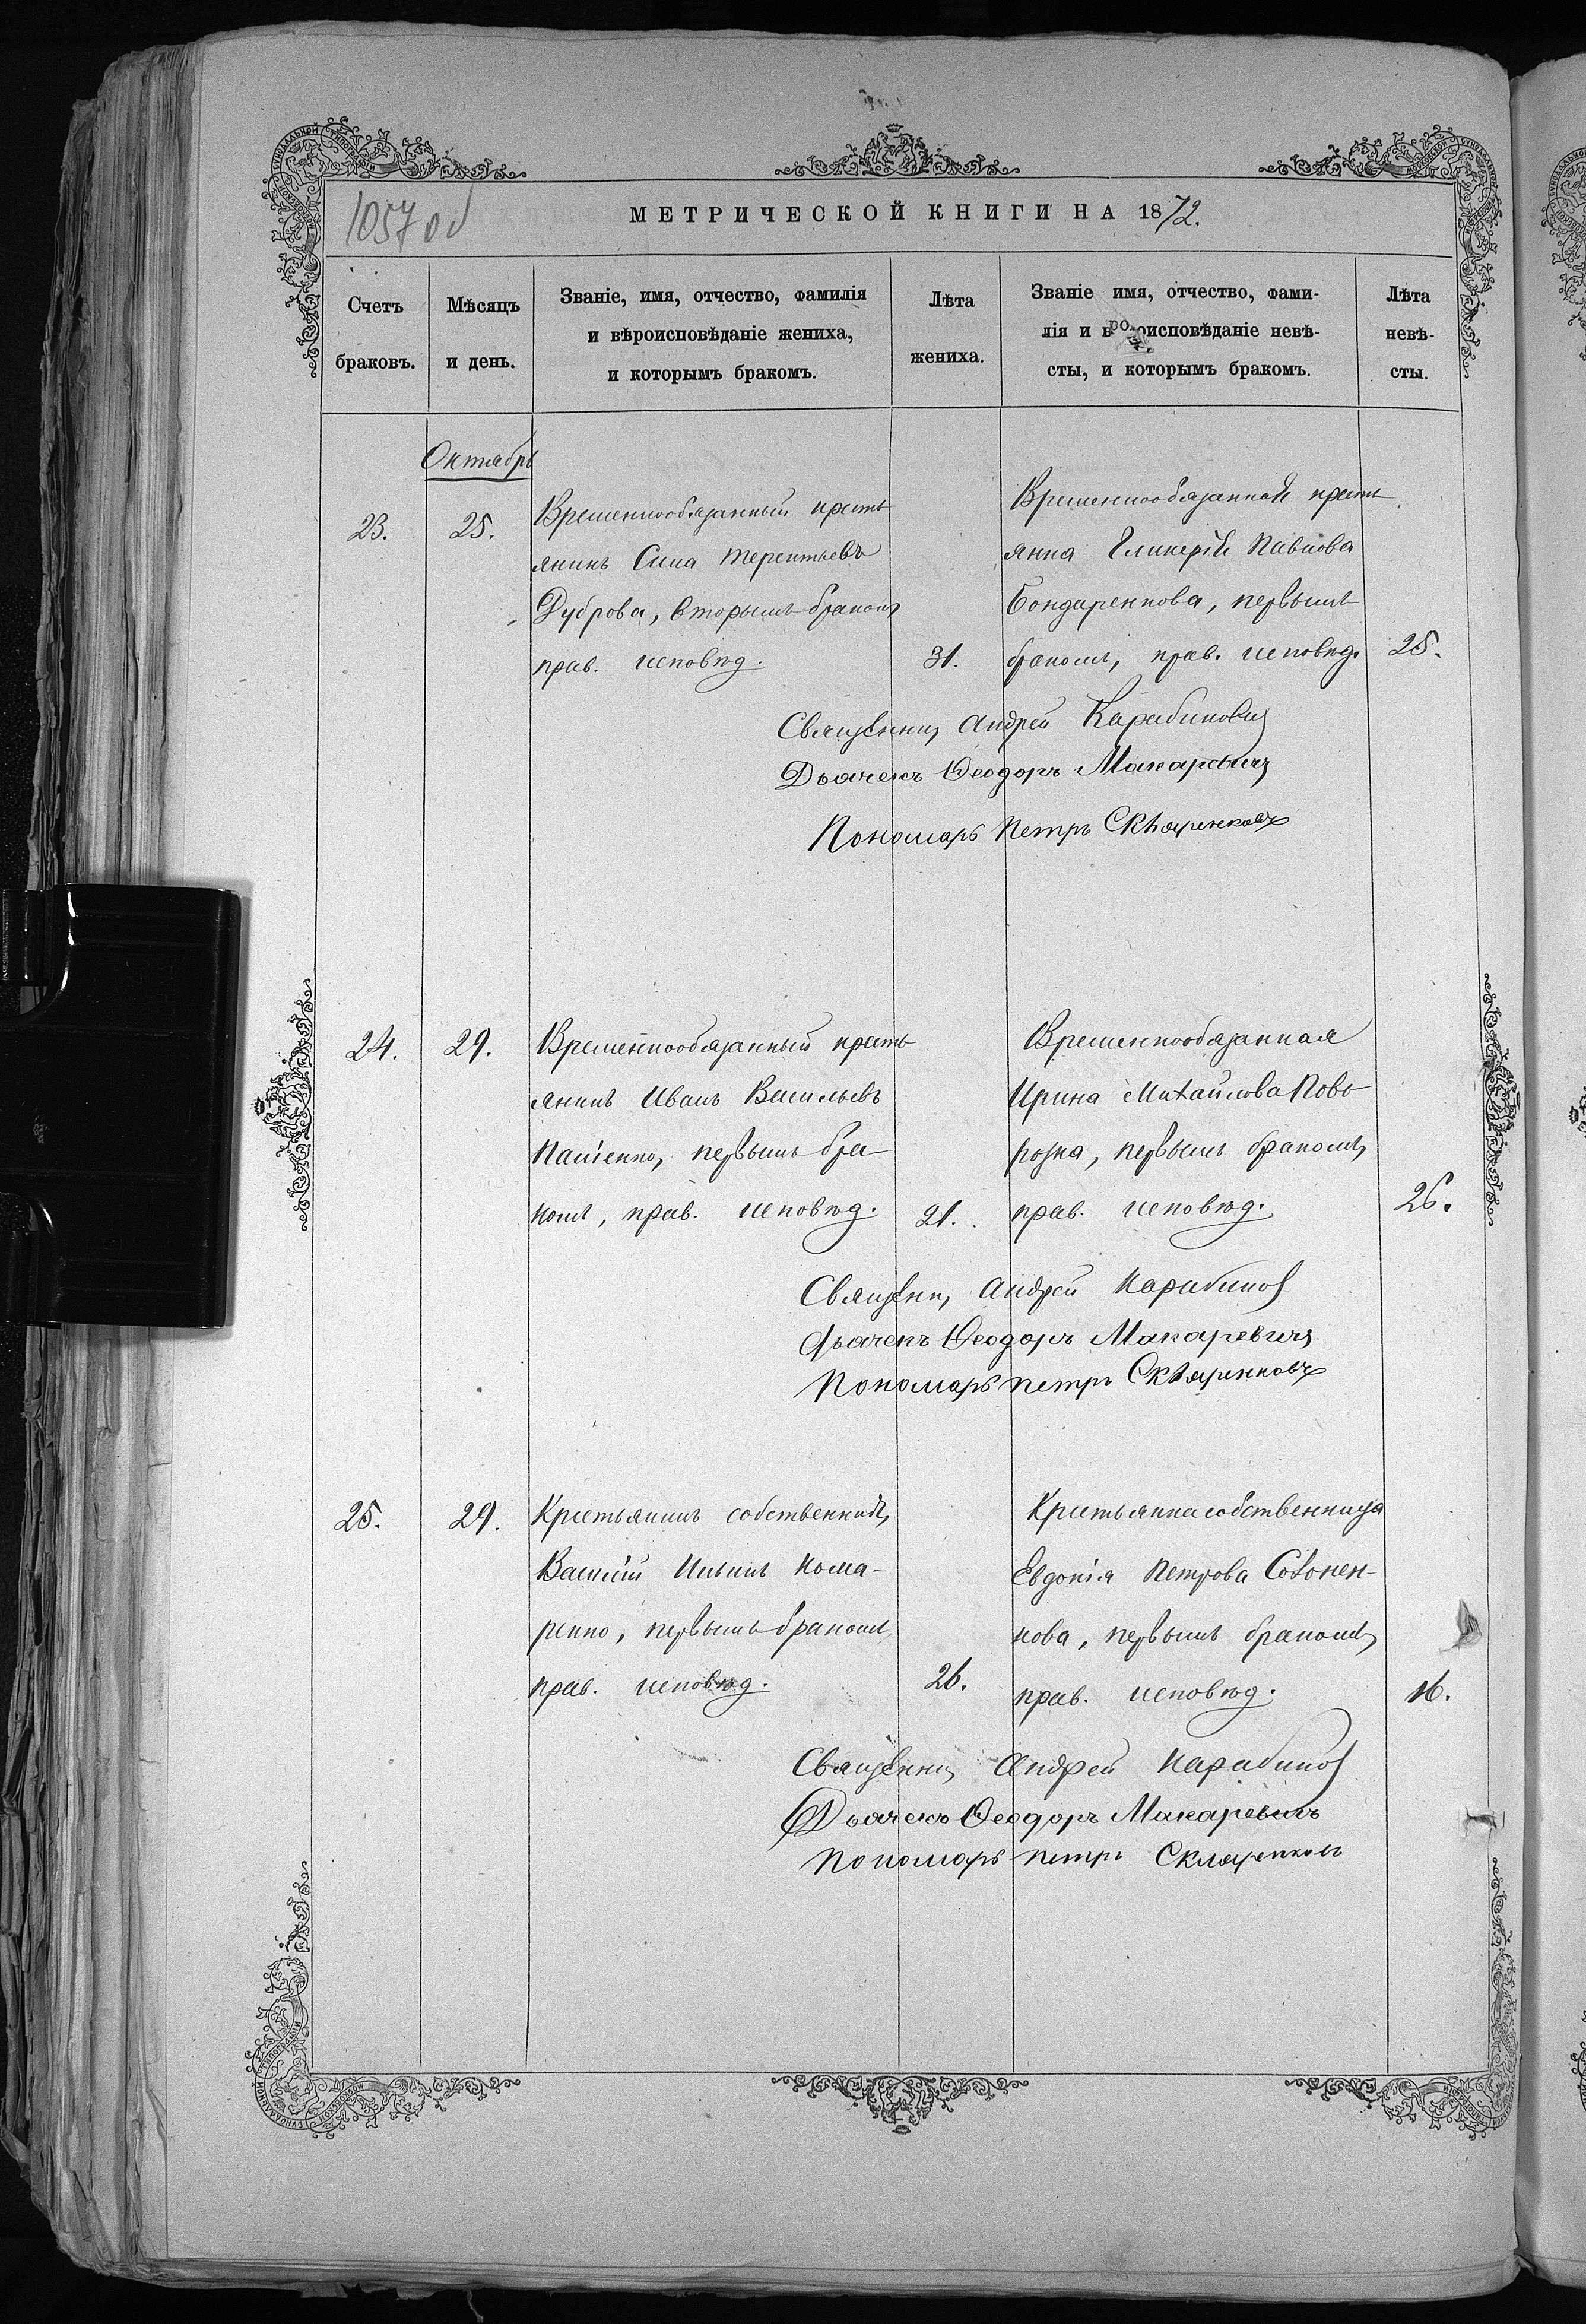 1057 об
МЕТРИЧЕСКОЙ КНИГИ НА 1872.
Счетъ браковъ.
Мѣсяцъ и день.
Званіе, имя, отчество, фамилія
и вѣроисповѣданіе жениха,
и которымъ бракомъ.
Лѣта жениха.
Званіе имя, отчество, фами-
лія и вѣроисповѣданіе невѣ-
сты, и которымъ бракомъ.
Лѣта невѣ-
сты.
Октябрь
23.
25.
Временнообязанный кресть
янинъ Сила Терентьевъ
Дуброва, вторымъ бракомъ
прав. исповѣд.
31.
Временнообязанная кресть
янка Гликерія Павлова
Бондаренкова, первымъ
бракомъ, прав. исповѣд.
25.
Священникъ Андрей Карабиновичъ
Дьячекъ Ѳеодоръ Макаревичъ
Пономарь Петръ Скляренковъ
24.
29.
Временнообязанный кресть
янинъ Иванъ Васильевъ
первымъ бра
комъ, прав. исповѣд.
21.
Временнообязанная
Ирина Михайлова
первымъ бракомъ,
прав. исповѣд.
Священн, Андрей Карабинов
Дьячекъ Ѳеодоръ Макаревичъ
Пономарь Петръ Скляренковъ
25.
29.
Крестьянинъ собственникъ,
Василій Ильинъ Кома-
ренко, первымъ бракомъ,
прав. исповѣд.
26.
Крестьянка собственница
Евдокія Петрова
первымъ бракомъ,
прав. исповѣд.
16.
Священникъ Андрей Карабинов
Дьячекъ Ѳеодоръ Макаревичъ
Пономарь Петръ Скляренковъ